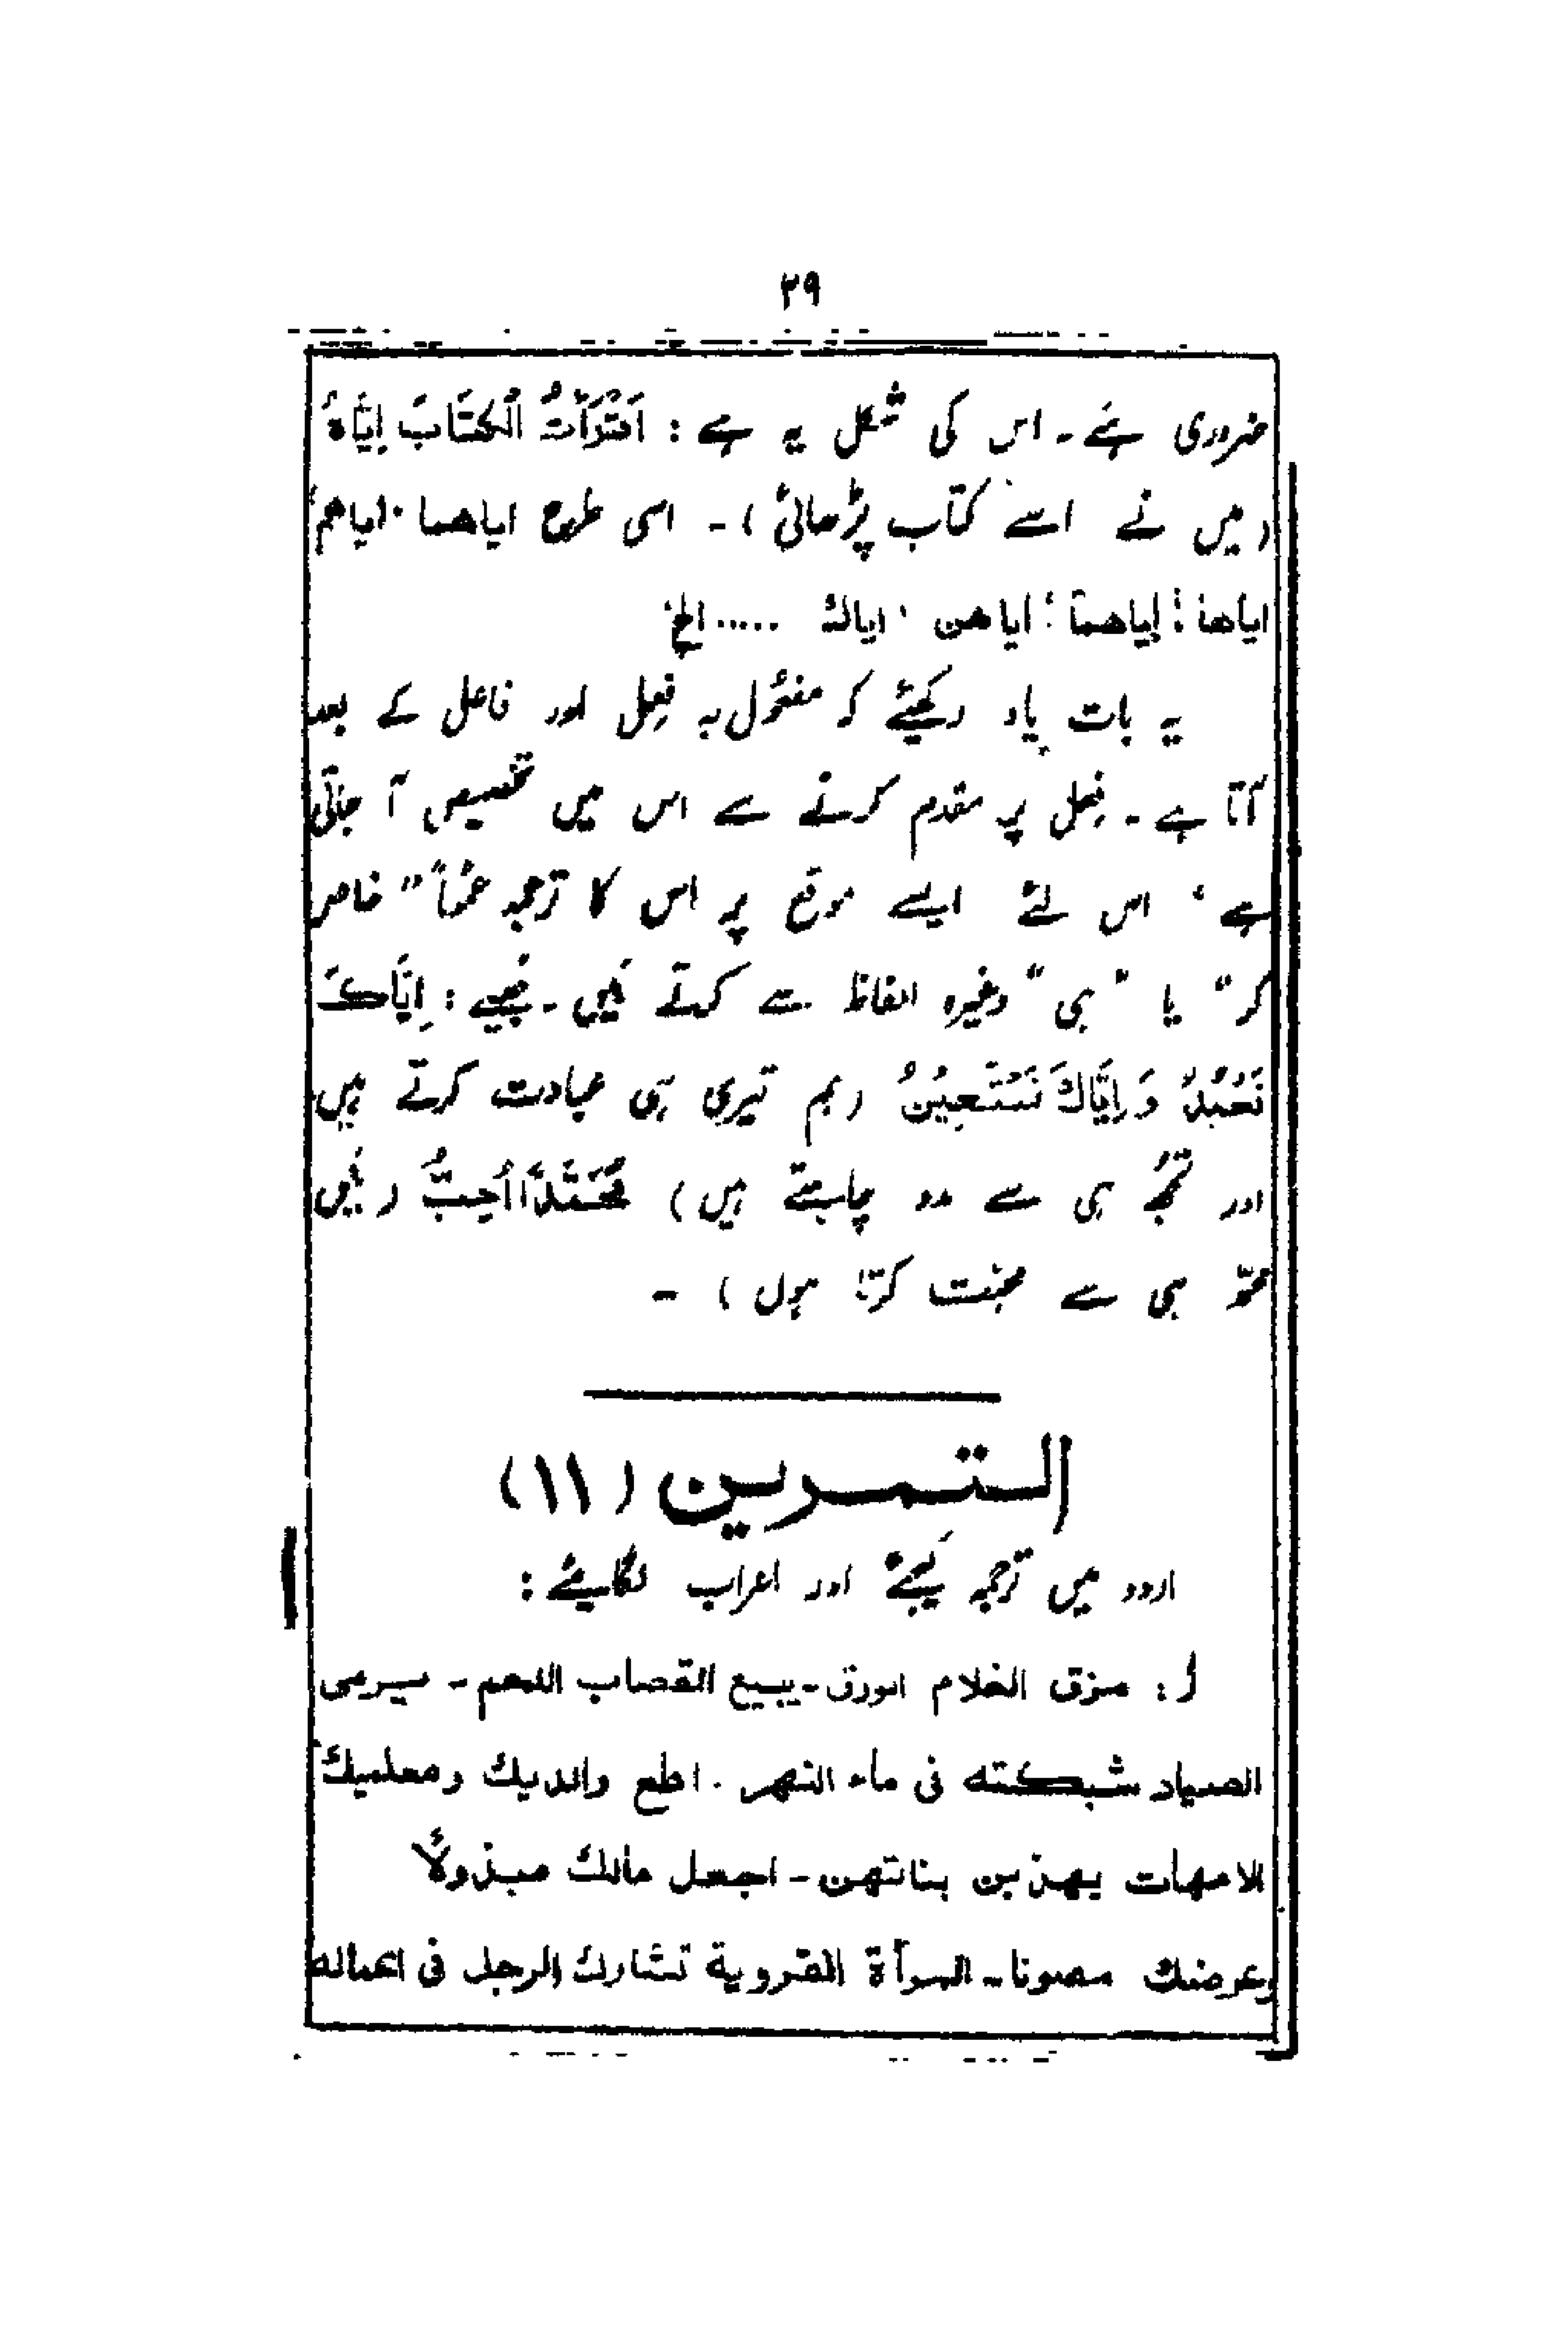 ۳۹
ضروری ہے۔ اس کی شکل یہ ہے : اَقْرَأْتُ الْكِتَابَ اِيَّاهُ
(میں نے اسے کتاب پڑھائی)۔ اسی طرح اياهما، اياهم،
اياها، اياهما، اياهن، اياك ..... الخ
یہ بات یاد رکھیئے کہ مفعول بہ فعل اور فاعل کے بعد
آتا ہے۔ فعل پر مقدم کرنے سے اس میں تخصیص آ جاتی
ہے، اس لئے ایسے موقع پر اس کا ترجمہ عموماً "خاص
کر" یا "ہی" وغیرہ الفاظ سے کرتے ہیں۔ جیسے : اِيَّاكَ
نَعْبُدُ وَاِيَّاكَ نَسْتَعِيْنُ (ہم تیری ہی عبادت کرتے ہیں
اور تجھ ہی سے مدد چاہتے ہیں) مُحَمَّدًا اُحِبُّ (میں
محمدؐ ہی سے محبت کرتا ہوں)۔
التمرين (۱۱)
اردو میں ترجمہ کیجئے اور اعراب لگائیے :
ا : مزق الغلام الورق - يبيع القصاب اللحم - سيرمى
الصياد شبكته فى ماء النهر . اطع والديك ومعلميك
الامهات يهذبن بناتهن - اجعل مالك مبذولاً
وعرضك مصونا - المرأة القروية تشارك الرجل فى اعماله